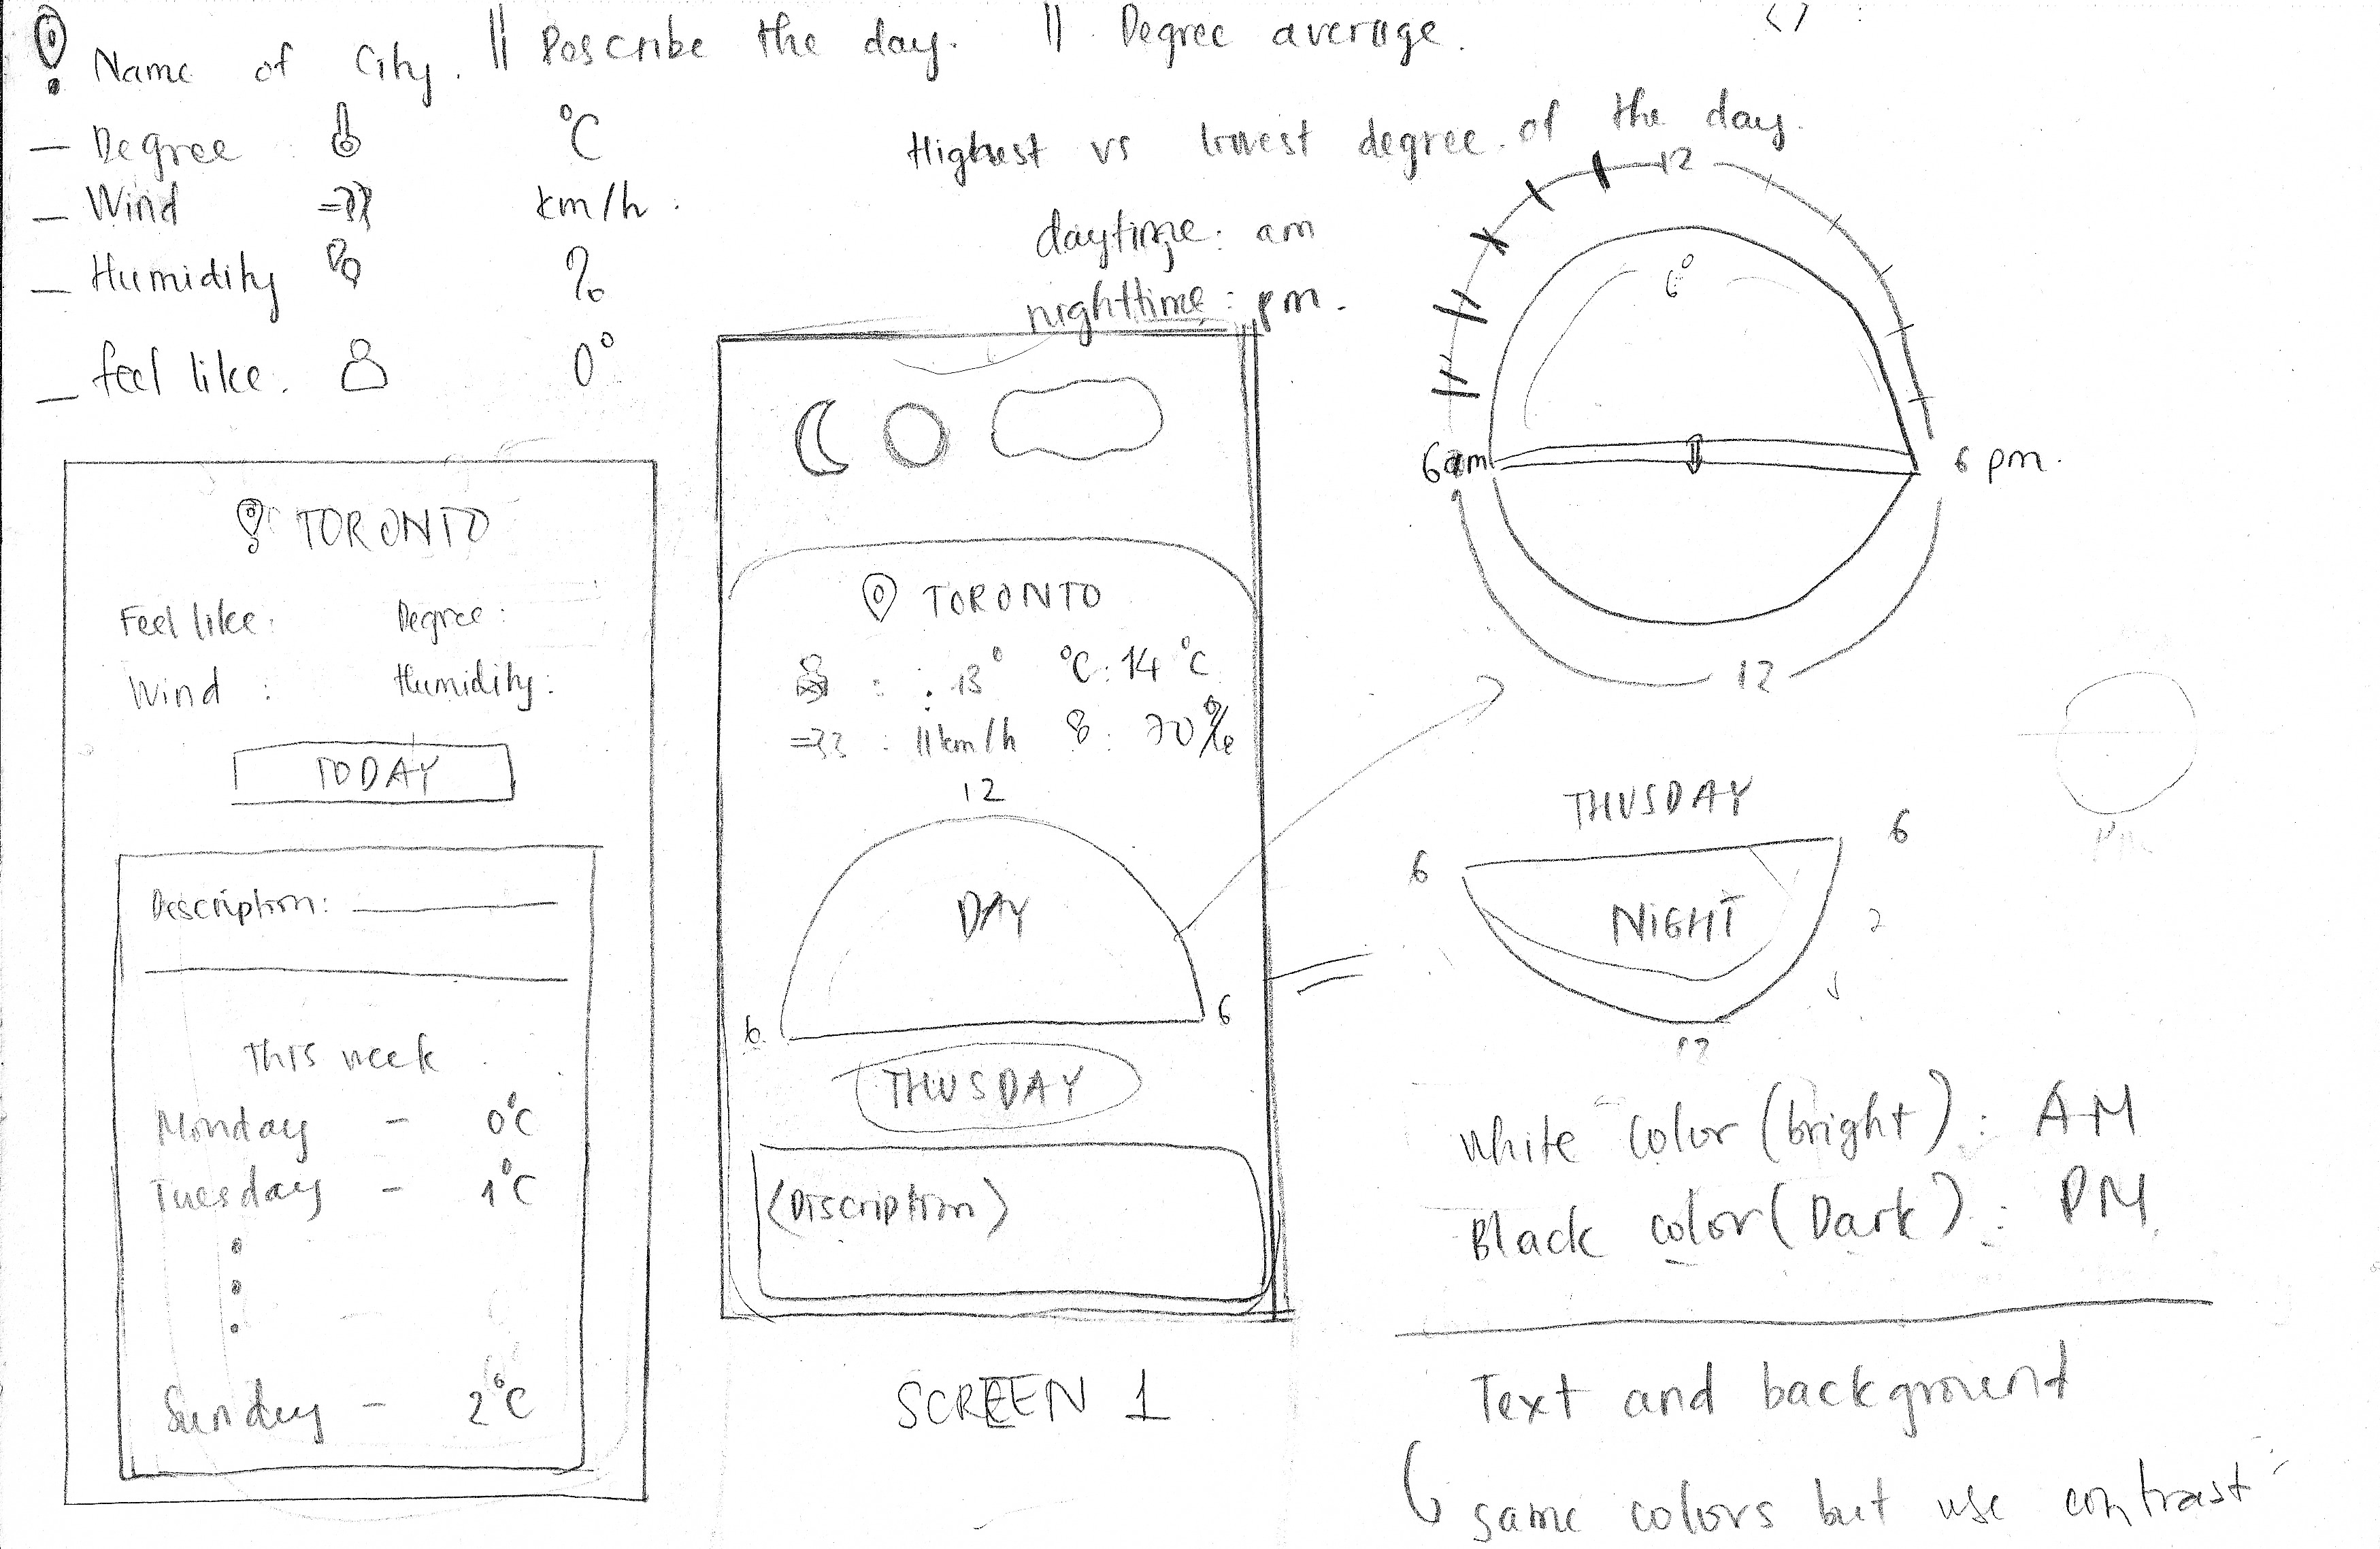 Name of City. || Describe the day. || Degree average.
- Degree °C
- Wind km/h.
- Humidity %
- feel like. 0°
Highest vs lowest degree of the day.
daytime: am
nighttime: pm.
TORONTO
Feel like: Degree:
Wind : Humidity:
TODAY
Description:
This week
Monday - 0°C
Tuesday - 1°C
Sunday - 2°C
TORONTO
: 13° °C: 14 °C
: 11km/h : 70%
12
DAY
6 6
THUSDAY
<Discription>
SCREEN 1
12
6°
6am 6 pm.
12
THUSDAY
6 6
NIGHT
12
White color (bright): AM
Black color (Dark): PM
Text and background
same colors but use contrast